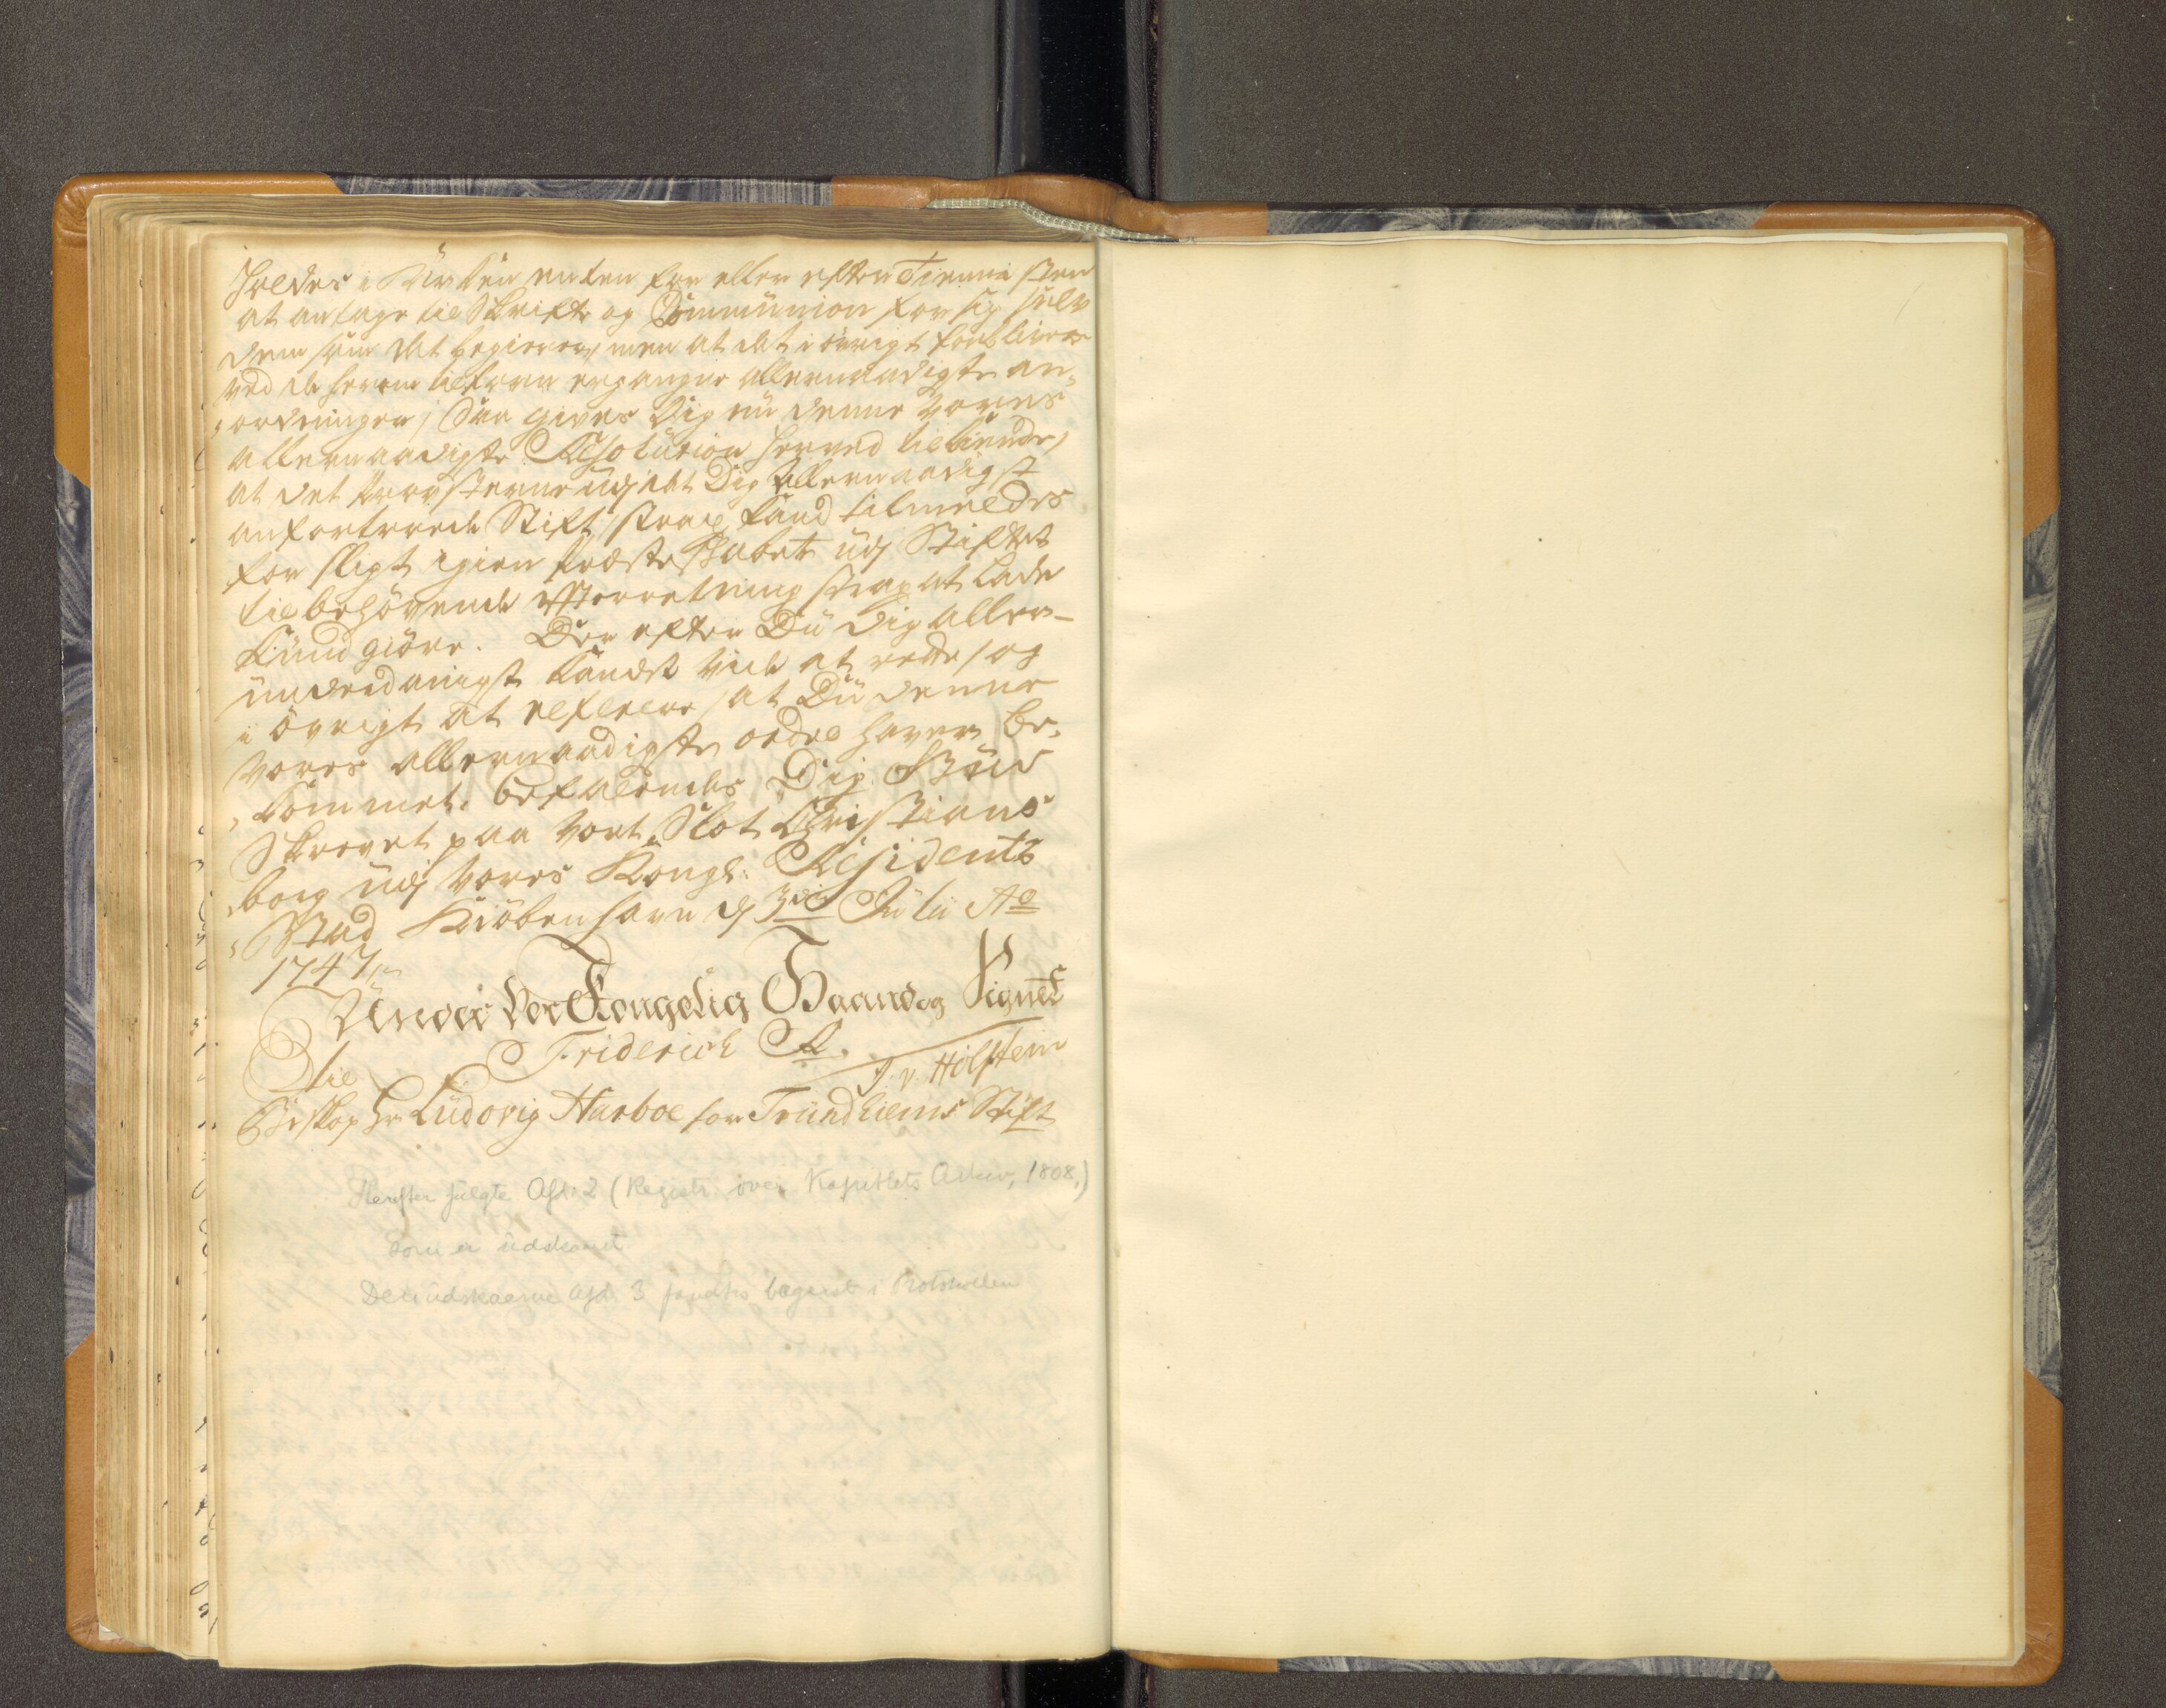 holdes i Kircken enten for eller efter Tiennisten
at antage til Skrifte og Communion for sig selv
dem som det begierer, men at det i øvrigt forbliver
ved de herom tilforn ergangne allernaadigste an„
„ordninger; Saa gives Dig nu denne Vores
allernaadigste Resolution herved tilkiende,
at det Provsterne udj det Dig allernaadigst
anfortroede Stift strax kand tilmeldes
for sligt igien Præsteskabet udj Stiftet
til behøvende Efterretning strax at lade
kundgiøre. Der efter Du Dig aller-
underdanigst kandst vide at rette, og
i øvrigt at referere, at Du denne
Vores allernaadigste ordre haver be„
„kommet. Befalendes Dig Gud
Skrevet paa Vort Slot Christians
„borg udj Vores Kongl: Residentz
„Stad Kiöbenhavn d 3die Julii Ao
1747
Under Vor Kongelig Haand og Signet
Friderich R.
J. v. Holstein
Til
Biskop Hr Ludovig Harboe for Trundhiems Stift
Herefter fulgte Afd: 2 (Registr. over Kapitlets Arkiv, 1808.)
som er udskaaret
Den udskaarne Afd. 3 fandtes bagerst i Protokollen